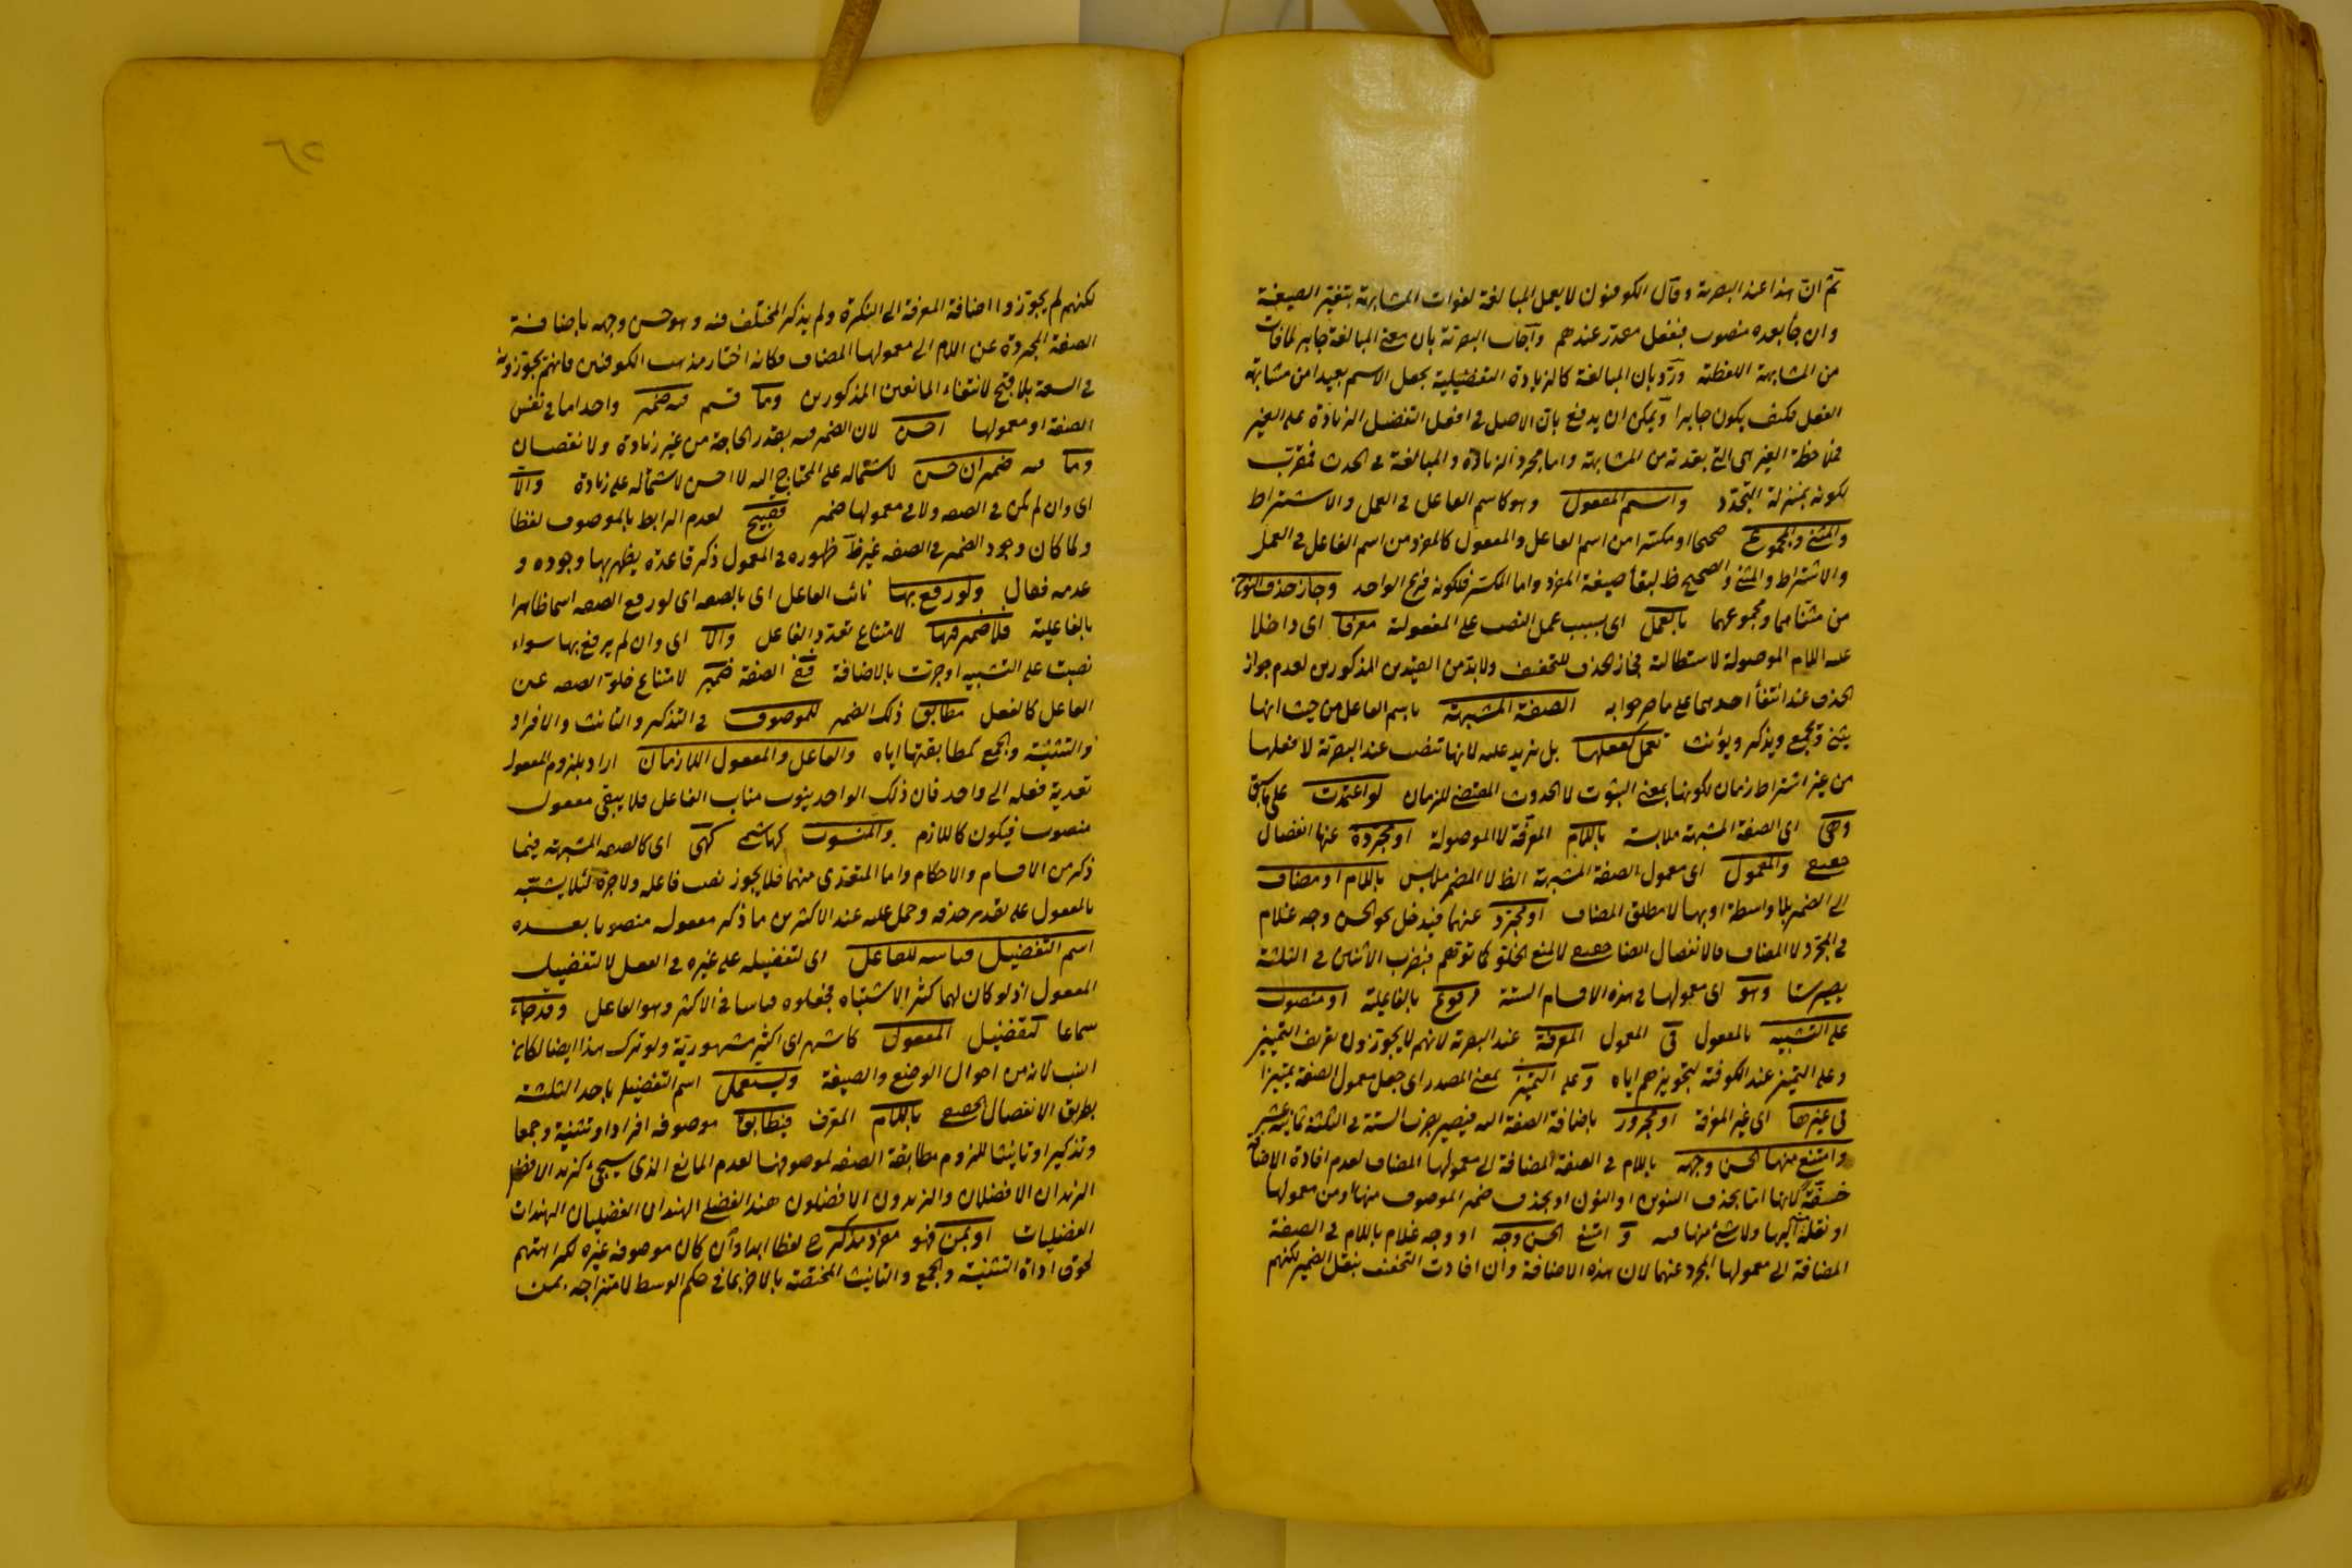 ثم ان هذا عند البصرية وقال الكوفيون لا يعمل المبالغة لفوات المشابهة بتغير الصيغة
وان جا بعده منصوب فبفعل مقدر عندهم وأجاب البصرية بان معنى المبالغة جابر لمافات
من المشابهة اللفظية ورد بان المبالغة كالزيادة التفضيلية يجعل الاسم بعيدا من مشابهة
الفعل فكيف يكون جابرا ويمكن ان يدفع بان الاصل في افعل التفضيل الزيادة على الغير
فملاحظة الغير هي التي بعدته من المشابهة واما مجرد الزيادة والمبالغة في الحدث فمقرب
لكونه بمنزلة التجدد واسم المفعول وهو كاسم الفاعل في العمل والاشتراط
والمثنى والمجموع صحيحا او مكسرا من اسم الفاعل والمفعول كالمفرد من اسم الفاعل في العمل
والاشتراط والمثنى والصحيح ظ لبقأ صيغة المفرد واما المكسر فلكونه فرع الواحد وجاز حذف النون
من مثناهما ومجموعهما بالعمل اى بسبب عمل النصب على المفعولية معرفا اى داخلا
عليه اللام الموصولة لاستطالته فجاز الحذف للتخفيف ولابد من القيدين المذكورين لعدم جواز
الحذف عند انتفأ احدهما على ما صرحوا به الصفة المشبهة باسم الفاعل من حيث انها
يثنى ويجمع ويذكر ويؤنث تعمل كفعلها بل يزيد عليه لانها تنصب عند البصرية لا فعلها
من غير اشتراط زمان لكونها بمعنى الثبوت لا الحدوث المقتضى للزمان لو اعتمدت على ما سبق
وهى اى الصفة المشبهة ملابسة باللام المعرفة لا الموصولة او مجردة عنها انفصال
حقيقي والمعمول اى معمول الصفة المشبهة الظ لا المضمر ملابس باللام او مضاف
الى الضمير بلا واسطة او بها لا مطلق المضاف او مجرد عنهما فيدخل نحو الحسن وجه غلام
في المجرد لا المضاف فالانفصال ايضا حقيقي لا لمنع الخلو كما توهم فبضرب الاثنين في الثلثة
يصير ستا وهو اى معمولها في هذه الاقسام الستة مرفوع بالفاعلية او منصوب
على التشبيه بالمفعول في المعمول المعرفة عند البصرية لانهم لا يجوزون تعريف التمييز
وعلى التميز عند الكوفية لتجويزهم اياه وعلى التميز بمعنى المصدر اى جعل معمول الصفة تميزا
في غيرها اى غير المعرفة او مجرور باضافة الصفة اليه فيصير بضرب الستة في الثلثة ثمانية عشر
وامتنع منها الحسن وجهه باللام في الصفة المضافة الى معمولها المضاف لعدم افادة الاضافة
خفة لانها اما بحذف التنوين او النون او بحذف ضمير الموصوف منها او من معمولها
او نقله اليها ولا شئ منها فيه و امتنع الحسن وجه او وجه غلام باللام في الصفة
المضافة الى معمولها المجرد عنهما لان هذه الاضافة وان افادت التخفيف بنقل الضمير لكنهم
لكنهم لم يجوزوا اضافة المعرفة الى النكرة ولم يذكر المختلف فيه وهو حسن وجهه باضافة
الصفة المجردة عن اللام الى معمولها المضاف فكانه اختار مذهب الكوفيين فانهم يجوزونه
في السعة بلا قبح لانتفاء المانعين المذكورين وما قسم فيه ضمير واحد اما في نفس
الصفة او معمولها احسن لان الضمير فيه بقدر الحاجة من غير زيادة ولا نقصان
وما فيه ضميران حسن لاشتماله على المحتاج اليه لا احسن لاشتماله على زيادة والا
اى وان لم يكن في الصفة ولا في معمولها ضمير فقبيح لعدم الرابط بالموصوف لفظا
ولما كان وجود الضمير في الصفه غير ظ ظهوره في المعمول ذكر قاعدة يظهر بها وجوده و
عدمه فقال ولو رفع بها نائب الفاعل اى بالصفه اى لو رفع الصفه اسما ظاهرا
بالفاعلية فلا ضمير فيها لامتناع تعدد الفاعل والا اى وان لم يرفع بها سواء
نصبت على التشبيه او جرت بالاضافة ففى الصفة ضمير لامتناع خلو الصفه عن
الفاعل كالفعل مطابق ذلك الضمير للموصوف في التذكير والتانيث والافراد
والتثنية والجمع كمطابقتها اياه والفاعل والمفعول اللازمان اراد بلزوم المفعول
تعدية فعله الى واحد فان ذلك الواحد ينوب مناب الفاعل فلا يبقى مفعول
منصوب فيكون كاللازم والمنسوب كهاشمى كهى اى كالصفه المشبهة فيما
ذكر من الاقسام والاحكام واما المتعدى منهما فلا يجوز نصب فاعله ولا جره لئلا يشتبه
بالمفعول على تقدير حذفه وحمل عليه عند الاكثرين ما ذكر مفعوله منصوبا بعده
اسم التفضيل قياسه للفاعل اى لتفضيله على غيره في الفعل لا لتفضيل
المفعول اذ لو كان لهما كثر الاشتباه فجعلوه قياسا في الاكثر وهو الفاعل وقد جاء
سماعا لتفضيل المفعول كاشهر اى اكثر مشهورية ولو ترك هذا ايضا لكان
انسب لانه من احوال الوضع والصيغة ويستعمل اسم التفضيل باحد الثلثة
بطريق الانفصال الحقيقي باللام المعرف فيطابق موصوفه افرادا وتثنية وجمعا
وتذكيرا وتانيثا للزوم مطابقة الصفه لموصوفها لعدم المانع الذى سيجئ كزيد الافضل
الزيدان الافضلان والزيدون الافضلون هند الفضلى الهندان الفضليان الهندات
الفضليات او بمن فهو مفرد مذكر ع لفظا ابدا وان كان موصوفه غيره لكراهتهم
لحوق اداة التثنية والجمع والتانيث المختصة بالاخر بما في حكم الوسط لامتزاجه بمن